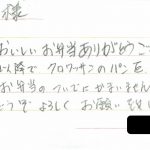 様
おいしいお弁当ありがとうご
以降で クロワッサンのパンを
お弁当のついでにやまいません
どうぞ よろしく お願いをし